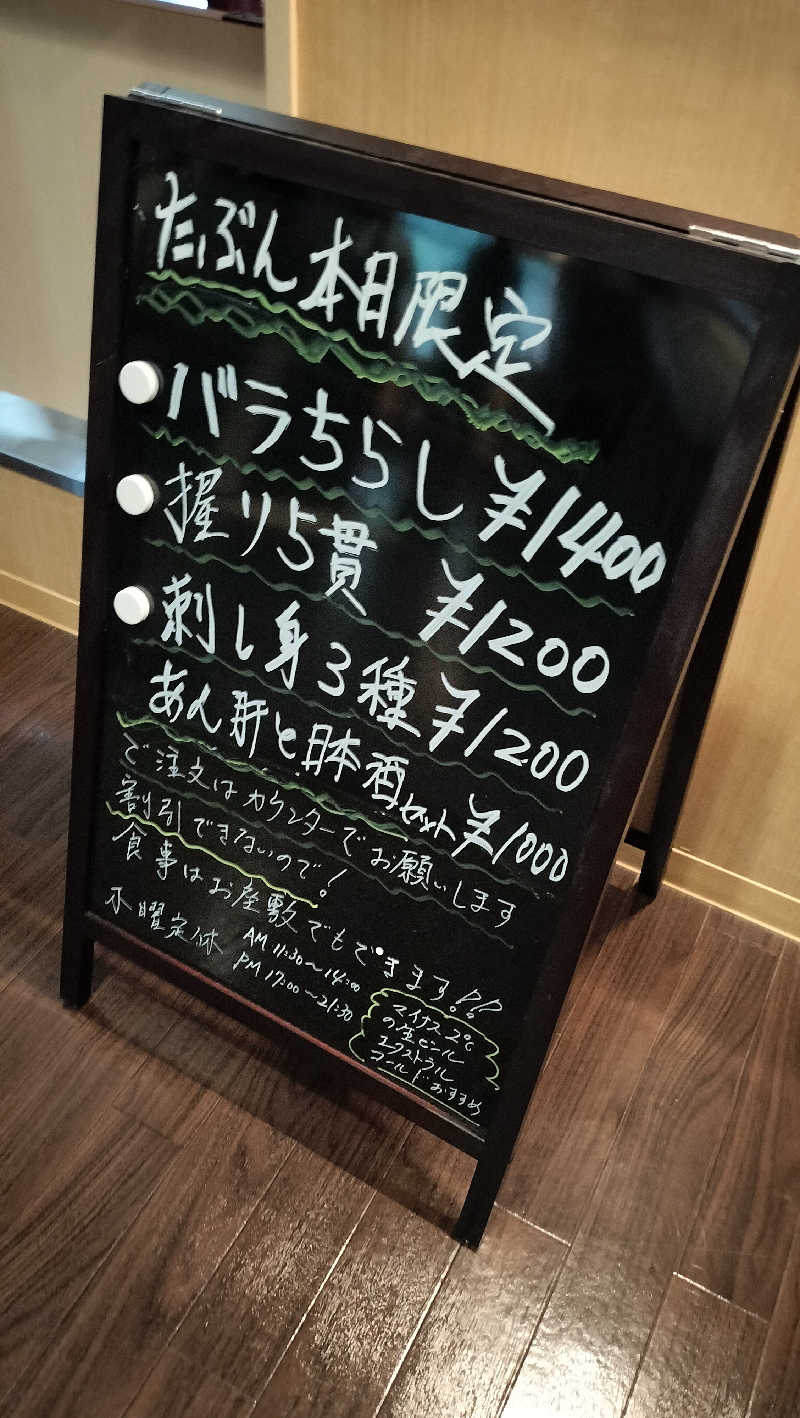 たぶん本日限定
バラちらし ¥1400
握り5貫 ¥1200
刺し身3種 ¥1200
あん肝と日本酒セット ¥1000
ご注文はカウンターでお願いします
割引できないので!
食事はお座敷でもできます!!
水曜定休 AM 11:30〜14:00
PM 17:00〜21:30
マイナス2℃
の生ビール
エクストラル
コールドおすすめ